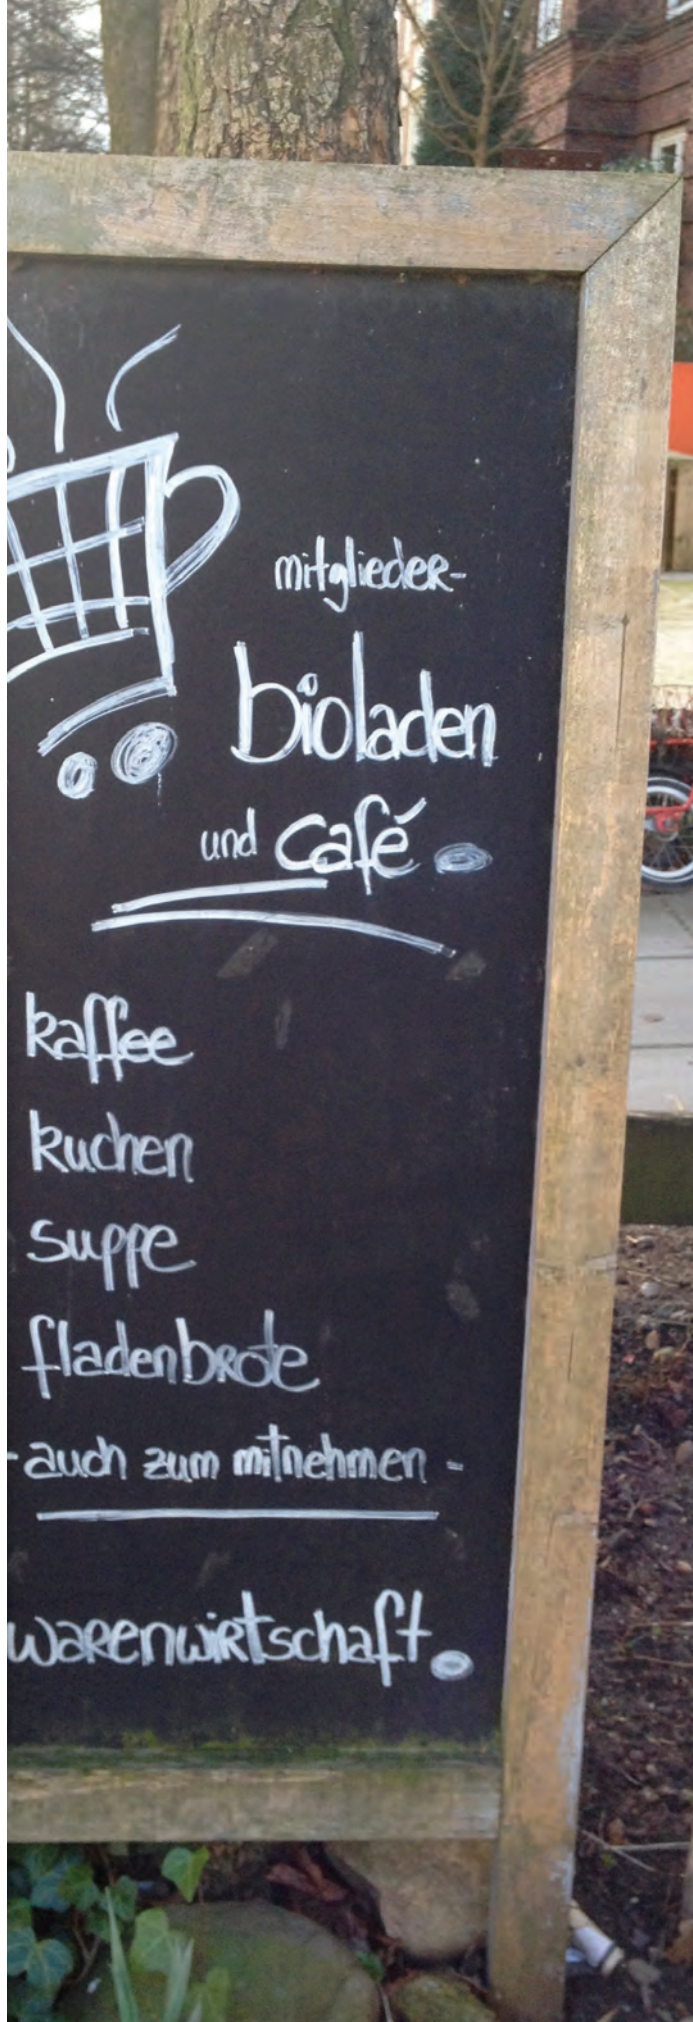 mitglieder-
bioladen
und café.
kaffee
kuchen
suppe
fladenbrote
- auch zum mitnehmen -
warenwirtschaft.